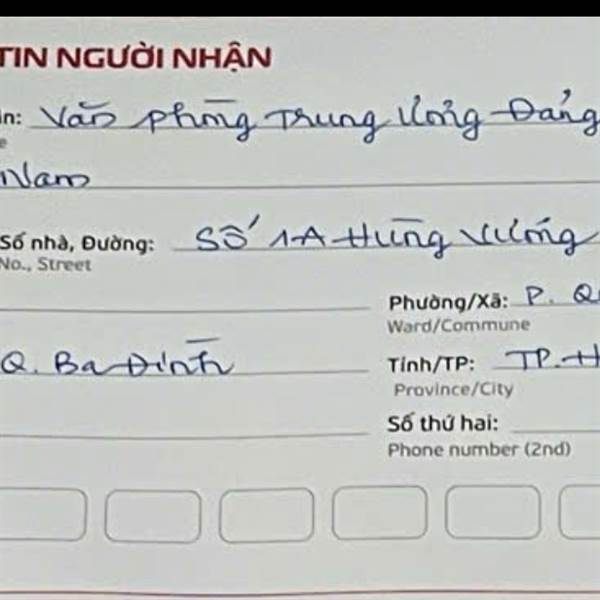 TIN NGƯỜI NHẬN
Văn phòng Trung Ương Đảng
Nam
Số nhà, Đường: Số 1A Hùng Vương
No., Street
Phường/Xã: P.
Ward/Commune
Q. Ba Đình
Tỉnh/TP: TP. H
Province/City
Số thứ hai:
Phone number (2nd)